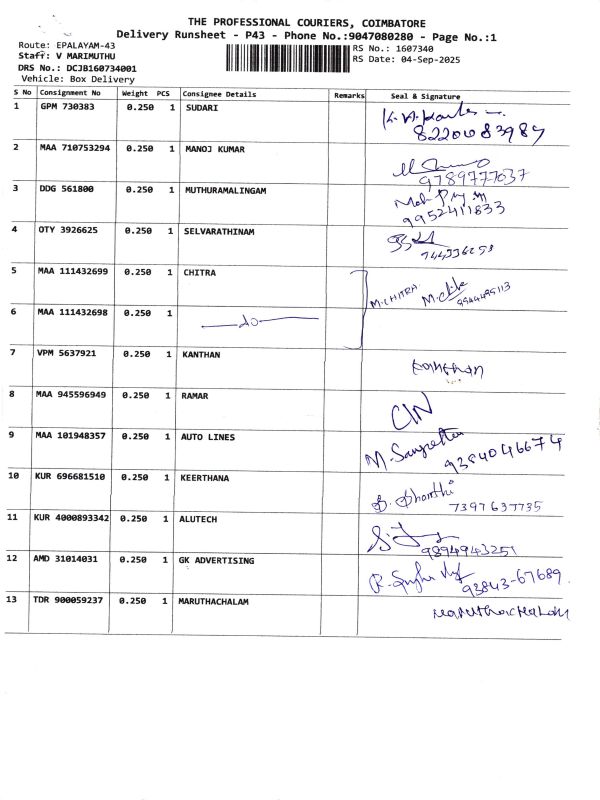 THE PROFESSIONAL COURIERS, COIMBATORE
Delivery Runsheet - P43 - Phone No.:9047080280 - Page No.:1
Route: EPALAYAM-43
Staff: V MARIMUTHU
DRS No.: DCJB160734001
Vehicle: Box Delivery
RS No.: 1607340
RS Date: 04-Sep-2025
S No Consignment No Weight PCS Consignee Details Remarks Seal & Signature
1 GPM 730383 0.250 1 SUDARI
8220083989
2 MAA 710753294 0.250 1 MANOJ KUMAR
9789777037
3 DDG 561800 0.250 1 MUTHURAMALINGAM
9952411833
4 OTY 3926625 0.250 1 SELVARATHINAM
5 MAA 111432699 0.250 1 CHITRA M.CHITRA
6 MAA 111432698 0.250 1 —do—
7 VPM 5637921 0.250 1 KANTHAN Kanthan
8 MAA 945596949 0.250 1 RAMAR
9 MAA 101948357 0.250 1 AUTO LINES
9384046674
10 KUR 696681510 0.250 1 KEERTHANA
7397637735
11 KUR 4000893342 0.250 1 ALUTECH
9894943251
12 AMD 31014031 0.250 1 GK ADVERTISING
93843-67689
13 TDR 900059237 0.250 1 MARUTHACHALAM maruthachalam